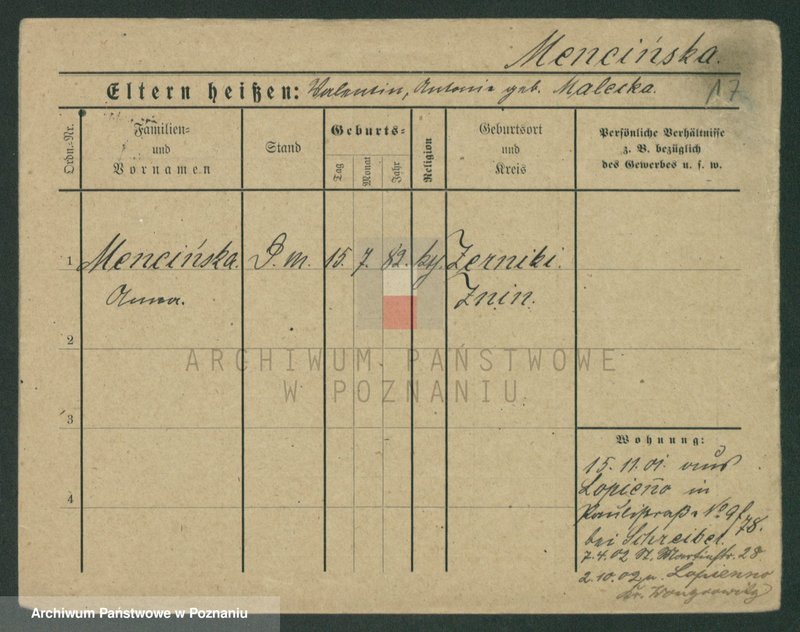 Mencińska.
Eltern heißen: Valentin, Antonie geb. Malecka.
17
Ordn.-Nr.
Familien-
und
Vornamen
Stand
Geburts-
Tag
Monat
Jahr
Religion
Geburtsort
und
Kreis
Persönliche Verhältnisse
z. B. bezüglich
des Gewerbes u. s. w.
1 Mencińska. D. m. 15. 7. 82. Zerniki.
Anna. Znin.
2
3
4
ARCHIWUM PAŃSTWOWE
W POZNANIU
Wohnung:
15. 11. 01. aus
Lopieno in
No 9
78.
bei Schreiber.
7.4.02 St. Martinstr. 28
2.10.02 n. Lopienno
Kr. Wongrowitz
Archiwum Państwowe w Poznaniu